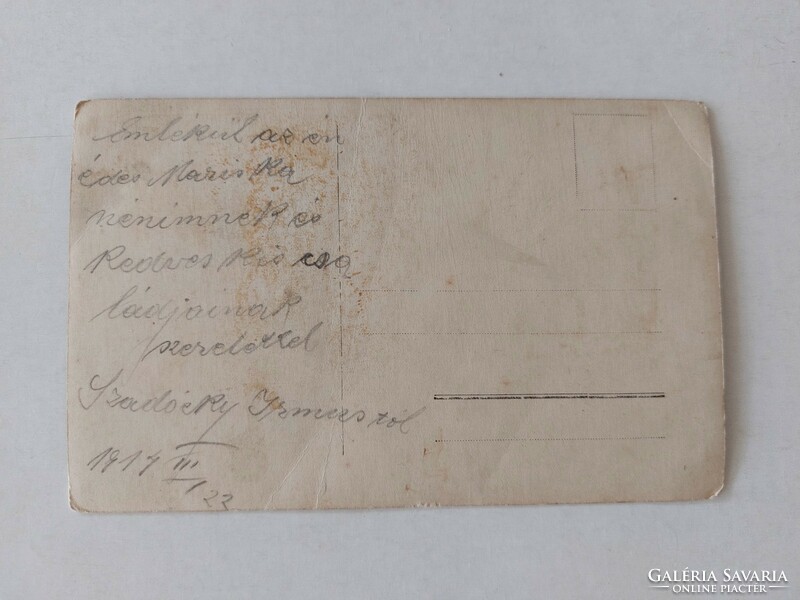 Emlékül az én
édes Mariska
nénimnek és
kedves kis csa
ládjainak
szeretettel
Szadócky Irmustól
1917 III/22
GALÉRIA SAVARIA
ONLINE PIACTÉR